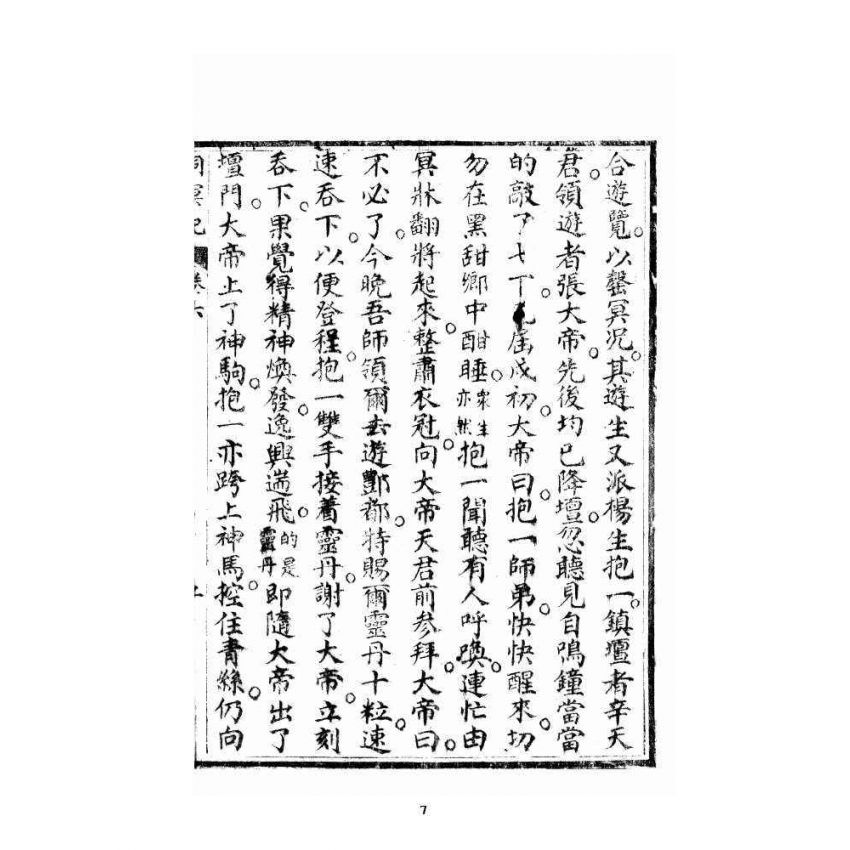 合遊覽。以罄冥况。其遊生又派楊生抱一。鎮壇者辛天
君。領遊者張大帝。先後均已降壇。忽聽見自鳴鐘當當
的敲了七下。届戌初。大帝曰。抱一師弟。快快醒來。切
勿在黑甜鄉中酣睡。衆生亦然抱一聞聽有人呼喚。連忙由
冥牀翻將起來。整肅衣冠。向大帝天君前參拜。大帝曰。
不必了。今晚吾師領爾去遊酆都。特賜爾靈丹十粒。速
速吞下。以便登程。抱一雙手接着靈丹。謝了大帝。立刻
吞下。果覺得精神煥發。逸興遄飛。的是靈丹即隨大帝出了
壇門。大帝上了神駒。抱一亦跨上神馬。控住青絲。仍向
冥記 卷六
7